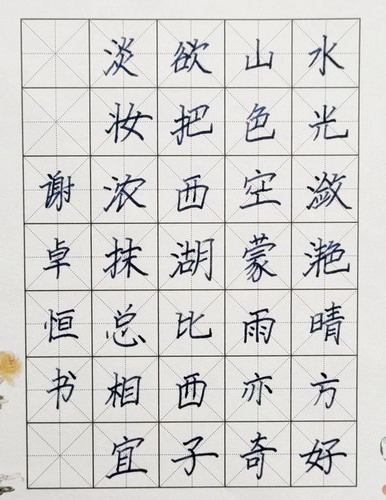 水光潋滟晴方好
山色空蒙雨亦奇
欲把西湖比西子
淡妆浓抹总相宜
谢卓恒书